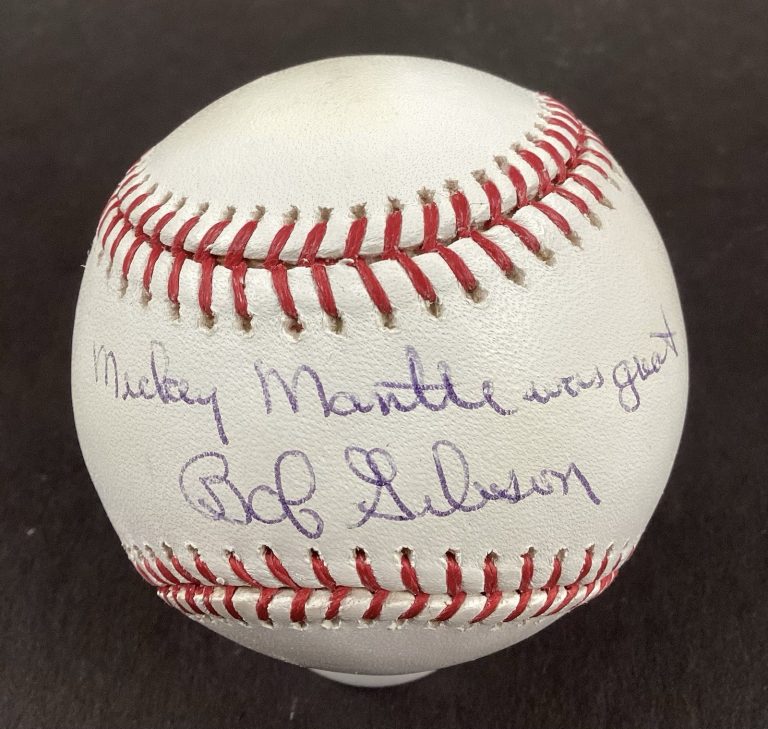 Mickey Mantle was great
Bob Gibson